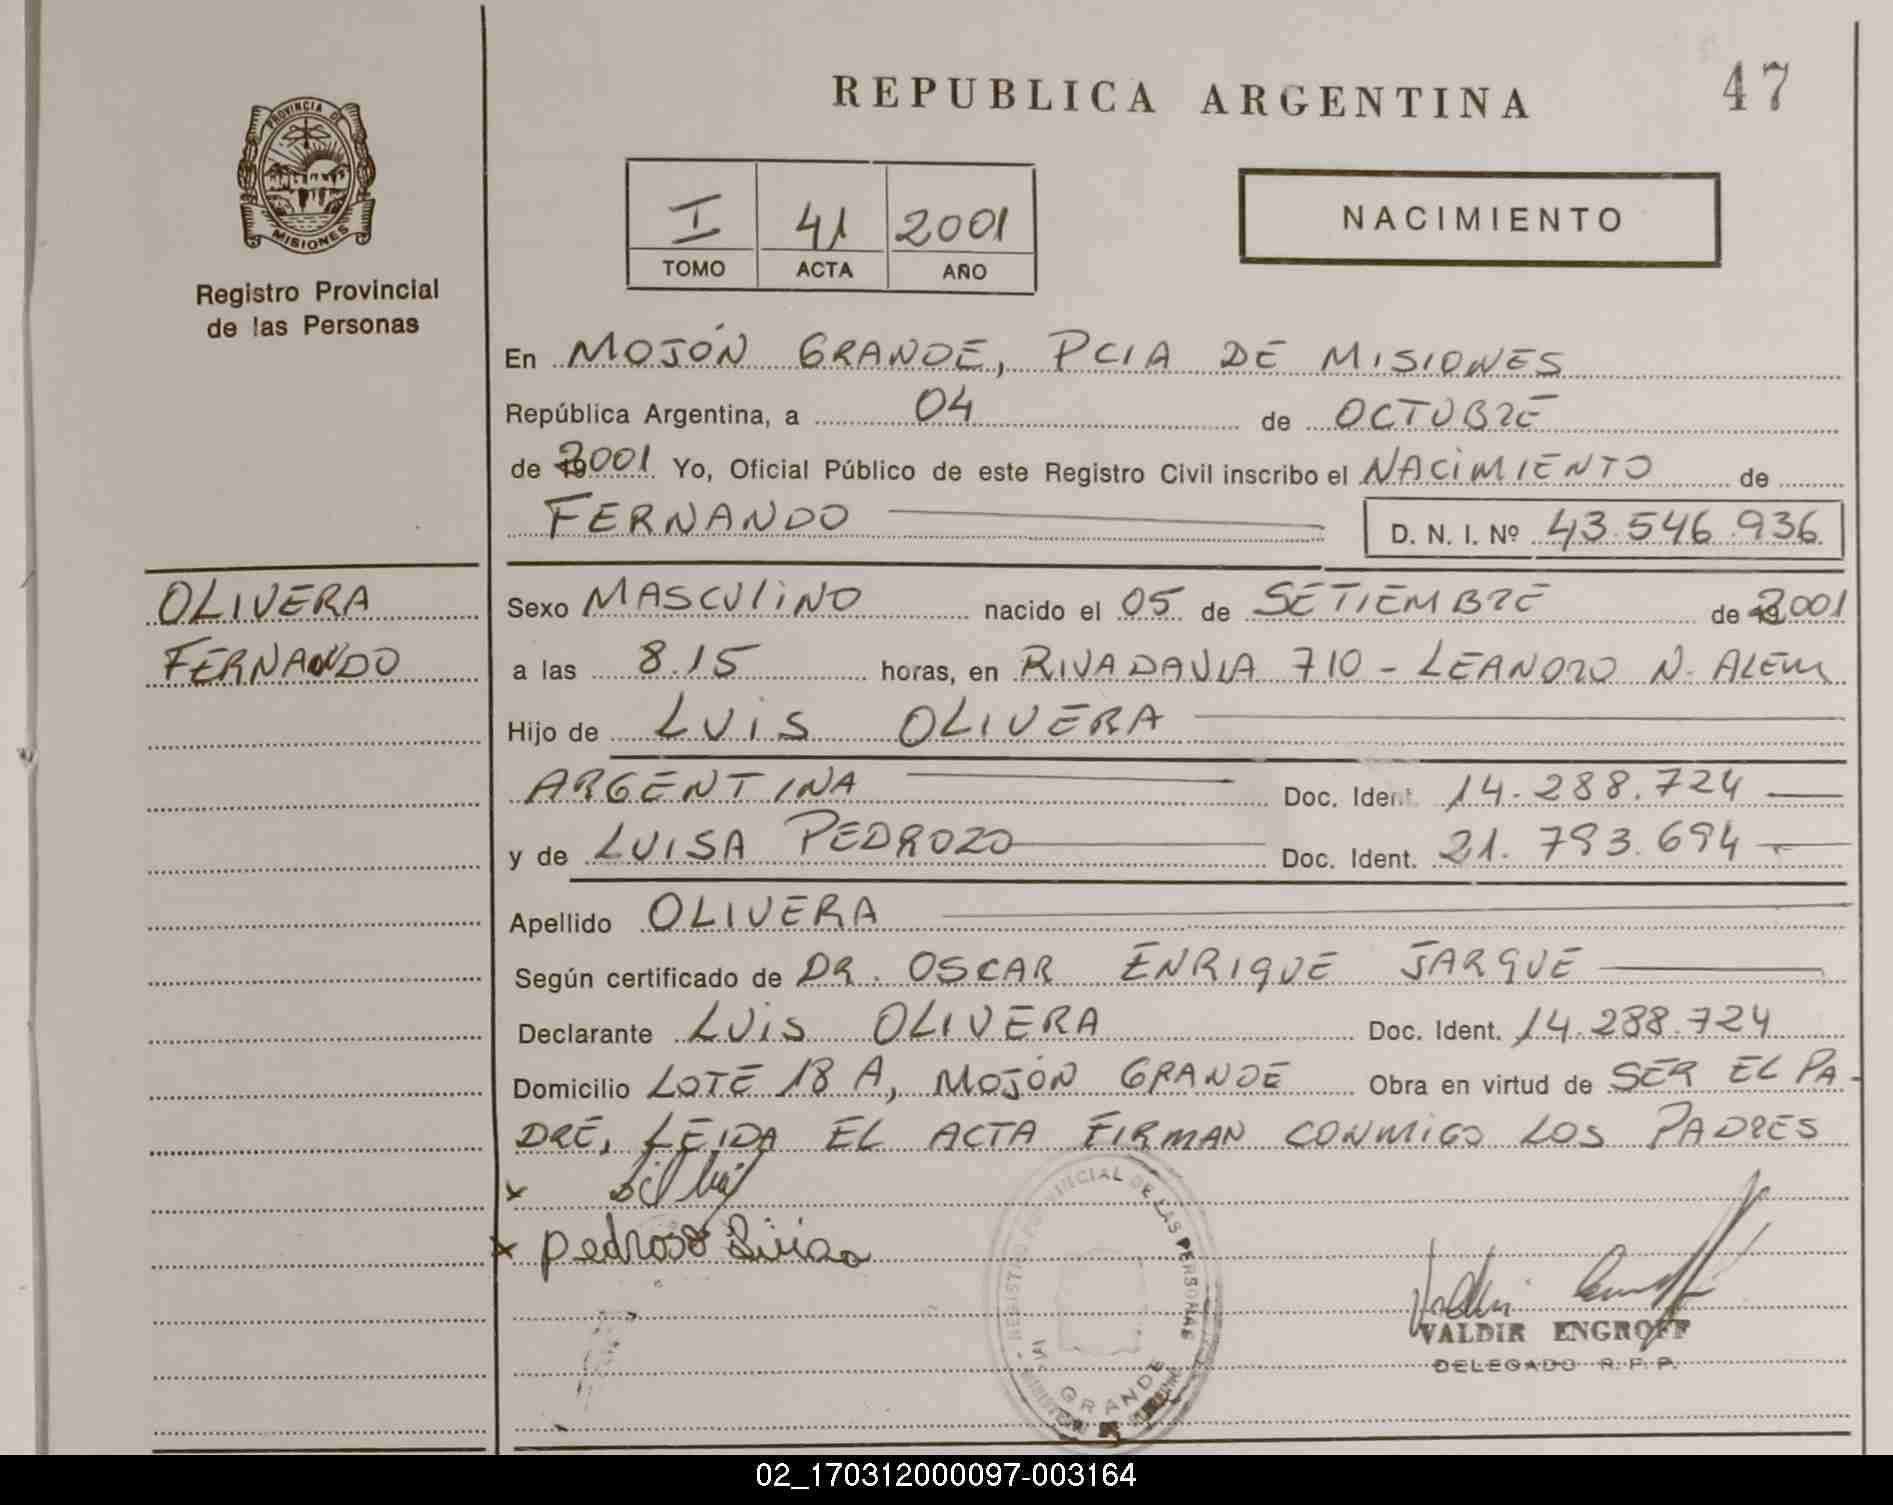 REPUBLICA ARGENTINA
47
PROVINCIA DE
MISIONES
Registro Provincial
de las Personas
I 41 2001
TOMO ACTA AÑO
NACIMIENTO
En MOJÓN GRANDE, PCIA DE MISIONES
República Argentina, a 04 de OCTUBRE
de 2001 Yo, Oficial Público de este Registro Civil inscribo el NACIMIENTO de
FERNANDO D. N. I. Nº 43.546.936
OLIVERA
FERNANDO
Sexo MASCULINO nacido el 05 de SETIEMBRE de 2001
a las 8.15 horas, en RIVADAVIA 710 - LEANDRO N. ALEM
Hijo de LUIS OLIVERA
ARGENTINA Doc. Ident. 14.288.724
y de LUISA PEDROZO Doc. Ident. 21.793.694
Apellido OLIVERA
Según certificado de DR. OSCAR ENRIQUE JARQUE
Declarante LUIS OLIVERA Doc. Ident. 14.288.724
Domicilio LOTE 18 A, MOJÓN GRANDE Obra en virtud de SER EL PA-
DRE, LEIDA EL ACTA FIRMAN CONMIGO LOS PADRES
x
x pedroso Luisa
REGISTRO PROVINCIAL DE LAS PERSONAS
GRANDE
VALDIR ENGROFF
DELEGADO R. P. P.
02_170312000097-003164